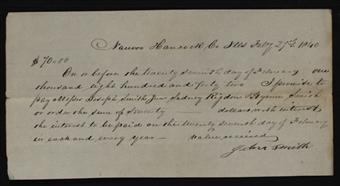 Nauvoo Hancock Co Ills Feby 27th 1840
$70.00
On or before the twenty seventh day of February one
thousand eight hundred and forty two I promise to
pay Joseph Smith Jun Sidney Rigdon & Hyrum Smith
or order the sum of seventy dollars with interest
the interest to be paid on the twenty seventh day of February
in each and every year — value received
John Smith